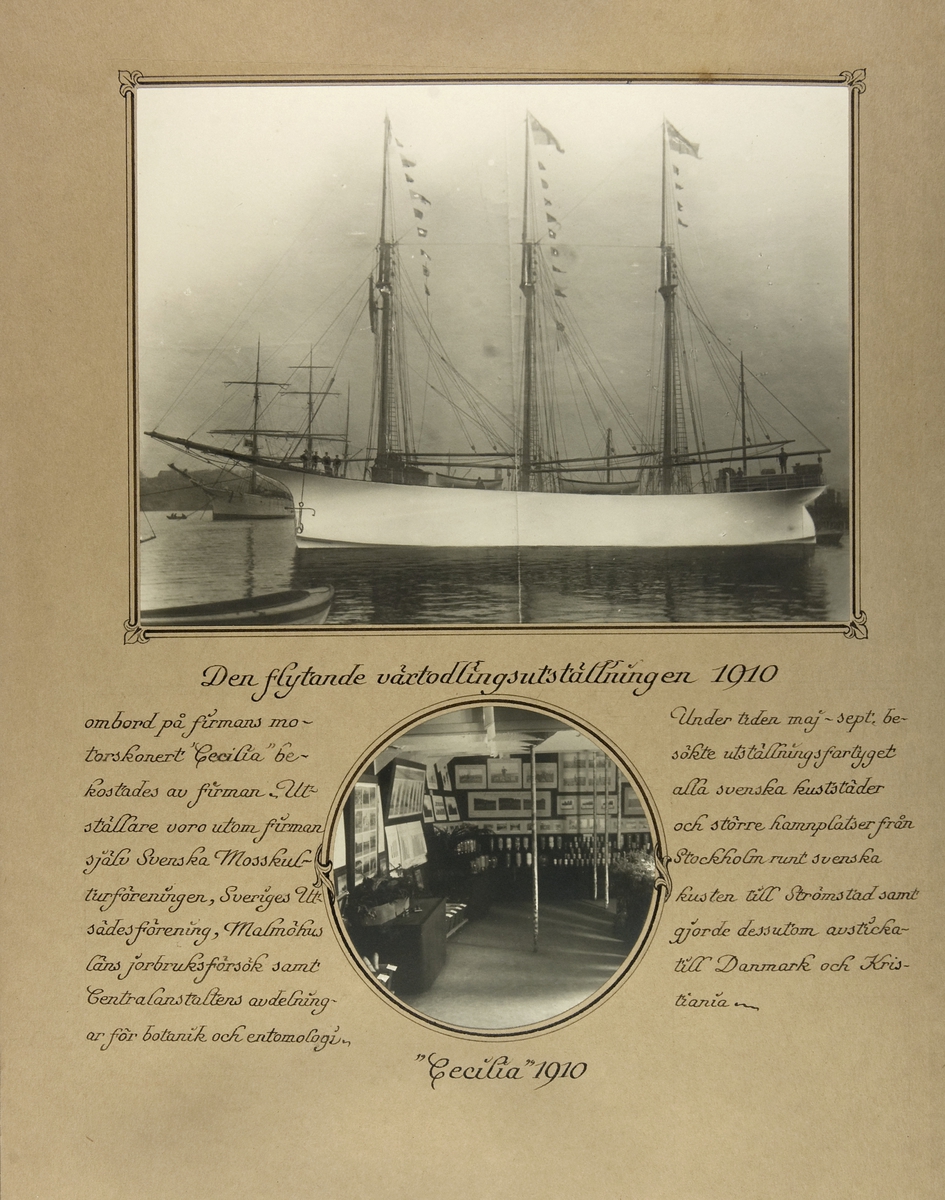 Den flytande växtodlingsutställningen 1910
ombord på firmans mo-
torskonert "Cecilia" be-
kostades av firman. Ut-
ställare voro utom firman
själv Svenska Mosskul-
turföreningen, Sveriges Ut-
sädesförening, Malmöhus
läns jorbruksförsök samt
Centralanstaltens avdelning-
ar för botanik och entomologi.
Under tiden maj - sept. be-
sökte utställningsfartyget
alla svenska kuststäder
och större hamnplatser från
Stockholm runt svenska
kusten till Strömstad samt
gjorde dessutom avsticka-
till Danmark och Kris-
tiania
"Cecilia" 1910